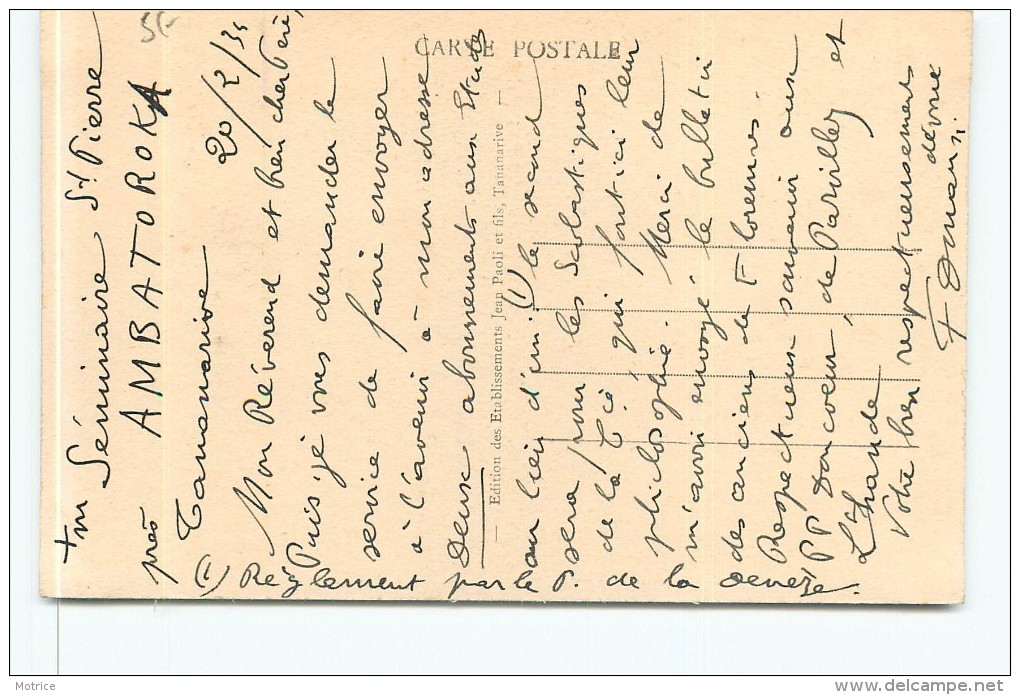 +m Séminaire St Pierre
près AMBATOROKA
Tananarive 20/2/35
Mon Révérend et bien cher Père,
Puis-je vous demander le
service de faire envoyer
à l'avenir à mon adresse
deux abonnements aux Etudes
au lieu d'un (1) le second
sera pour les Scolastiques
de la Cie qui font ici leur
philosophie. Merci de
m'avoir envoyé le bulletin
des anciens de F
Respectueux souvenir aux
PP Doncoeur, de Parvillez et
L'hande
Votre bien respectueusement
dévoué
(1) Règlement par le P. de la Devèze.
CARTE POSTALE
— Edition des Etablissements Jean Paoli et fils, Tananarive —
56
Motrice
http://www.delcampe.net